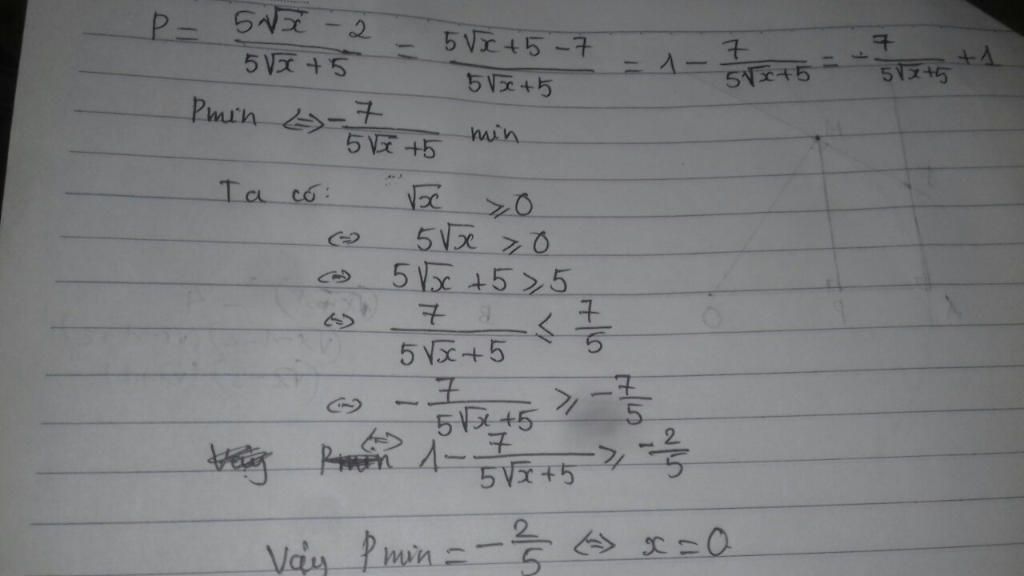 P = (5√x - 2)/(5√x + 5) = (5√x + 5 - 7)/(5√x + 5) = 1 - 7/(5√x + 5) = - 7/(5√x + 5) + 1
Pmin ⇔ - 7/(5√x + 5) min
Ta có: √x ⩾ 0
⇔ 5√x ⩾ 0
⇔ 5√x + 5 ⩾ 5
⇔ 7/(5√x + 5) ⩽ 7/5
⇔ - 7/(5√x + 5) ⩾ - 7/5
⇔ 1 - 7/(5√x + 5) ⩾ -2/5
Vậy Pmin = - 2/5 ⇔ x = 0